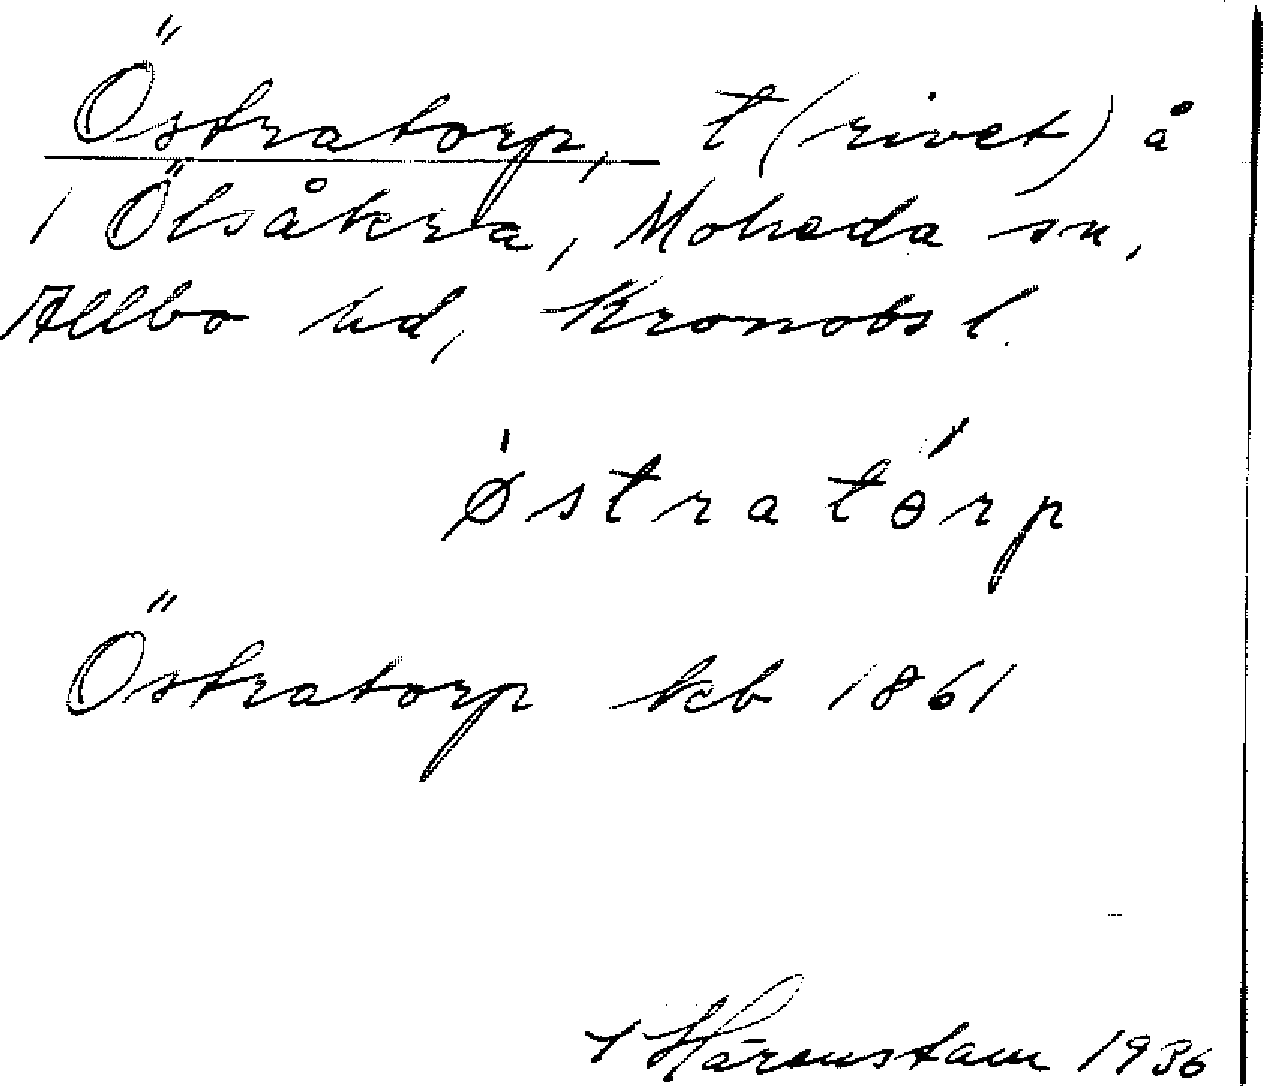 Östratorp, t (rivet) å
1 Ölsåkra, Moheda sn,
Allbo hd, Kronobs l.
ø'stratө́rp
Östratorp kb 1861
Y Härenstam 1936